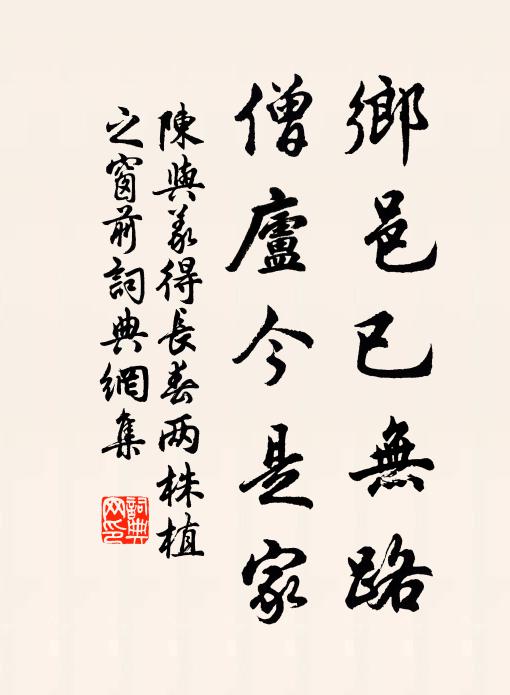 鄉邑已無路
僧廬今是家
陳與義得長春兩株植
之窗前詞典網集
詞典
网印